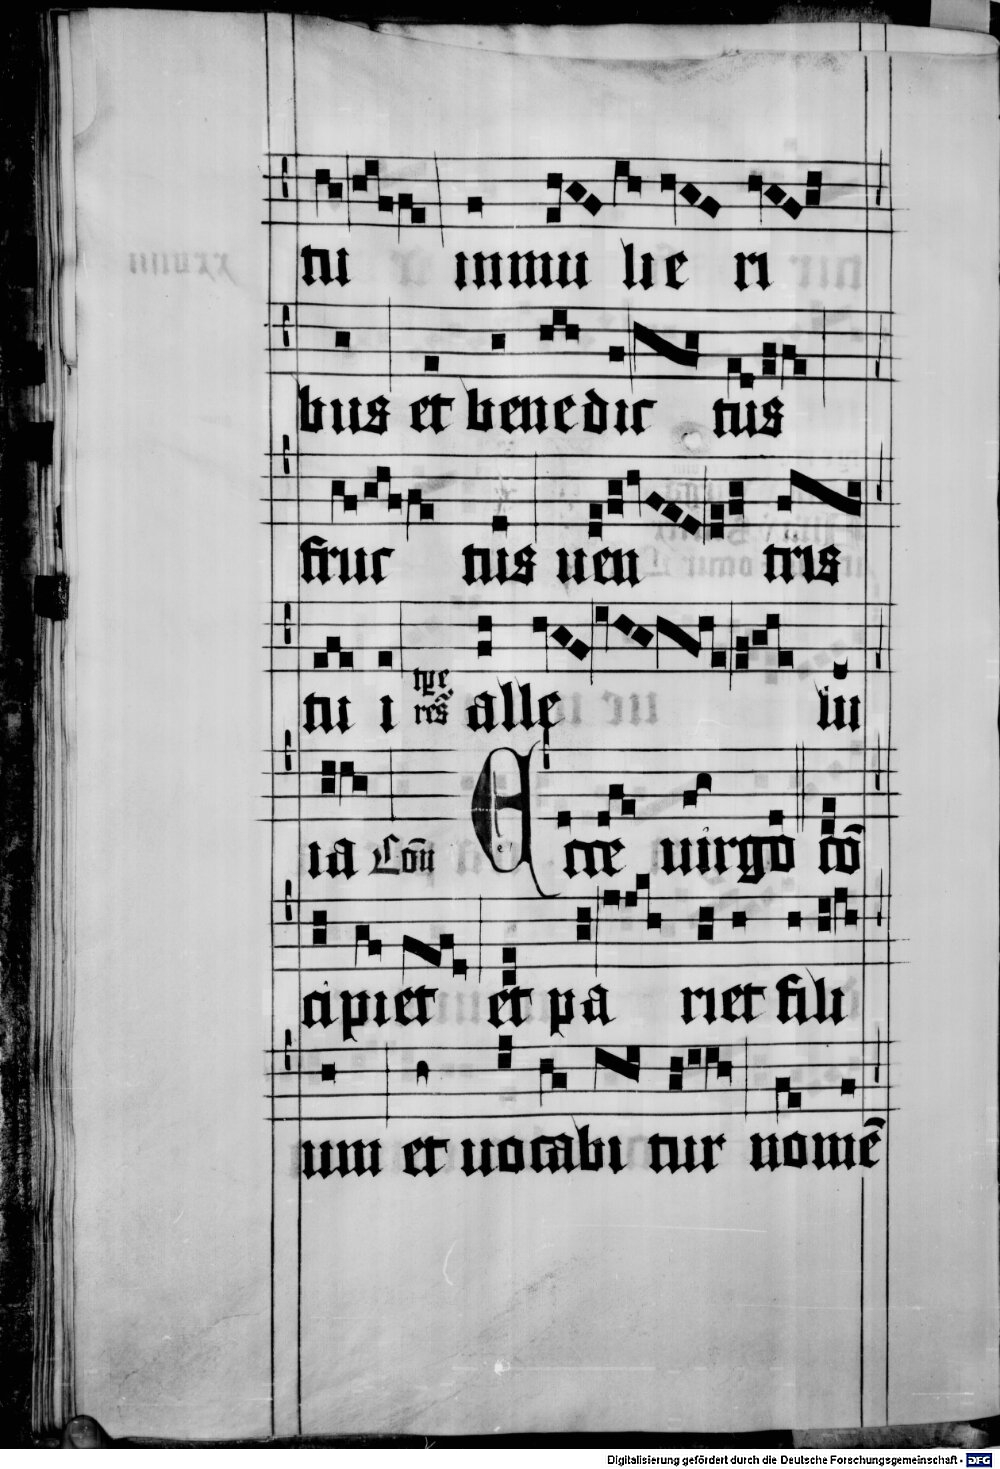 tu inmu lie ri
bus et benedic tus
fruc tus uen tris
tu i tp̄e resr̄ alle iu
ia Cōn Ecce uirgo cō
cipiet et pa riet fili
um et uocabi tur nomē
Digitalisierung gefördert durch die Deutsche Forschungsgemeinschaft - DFG